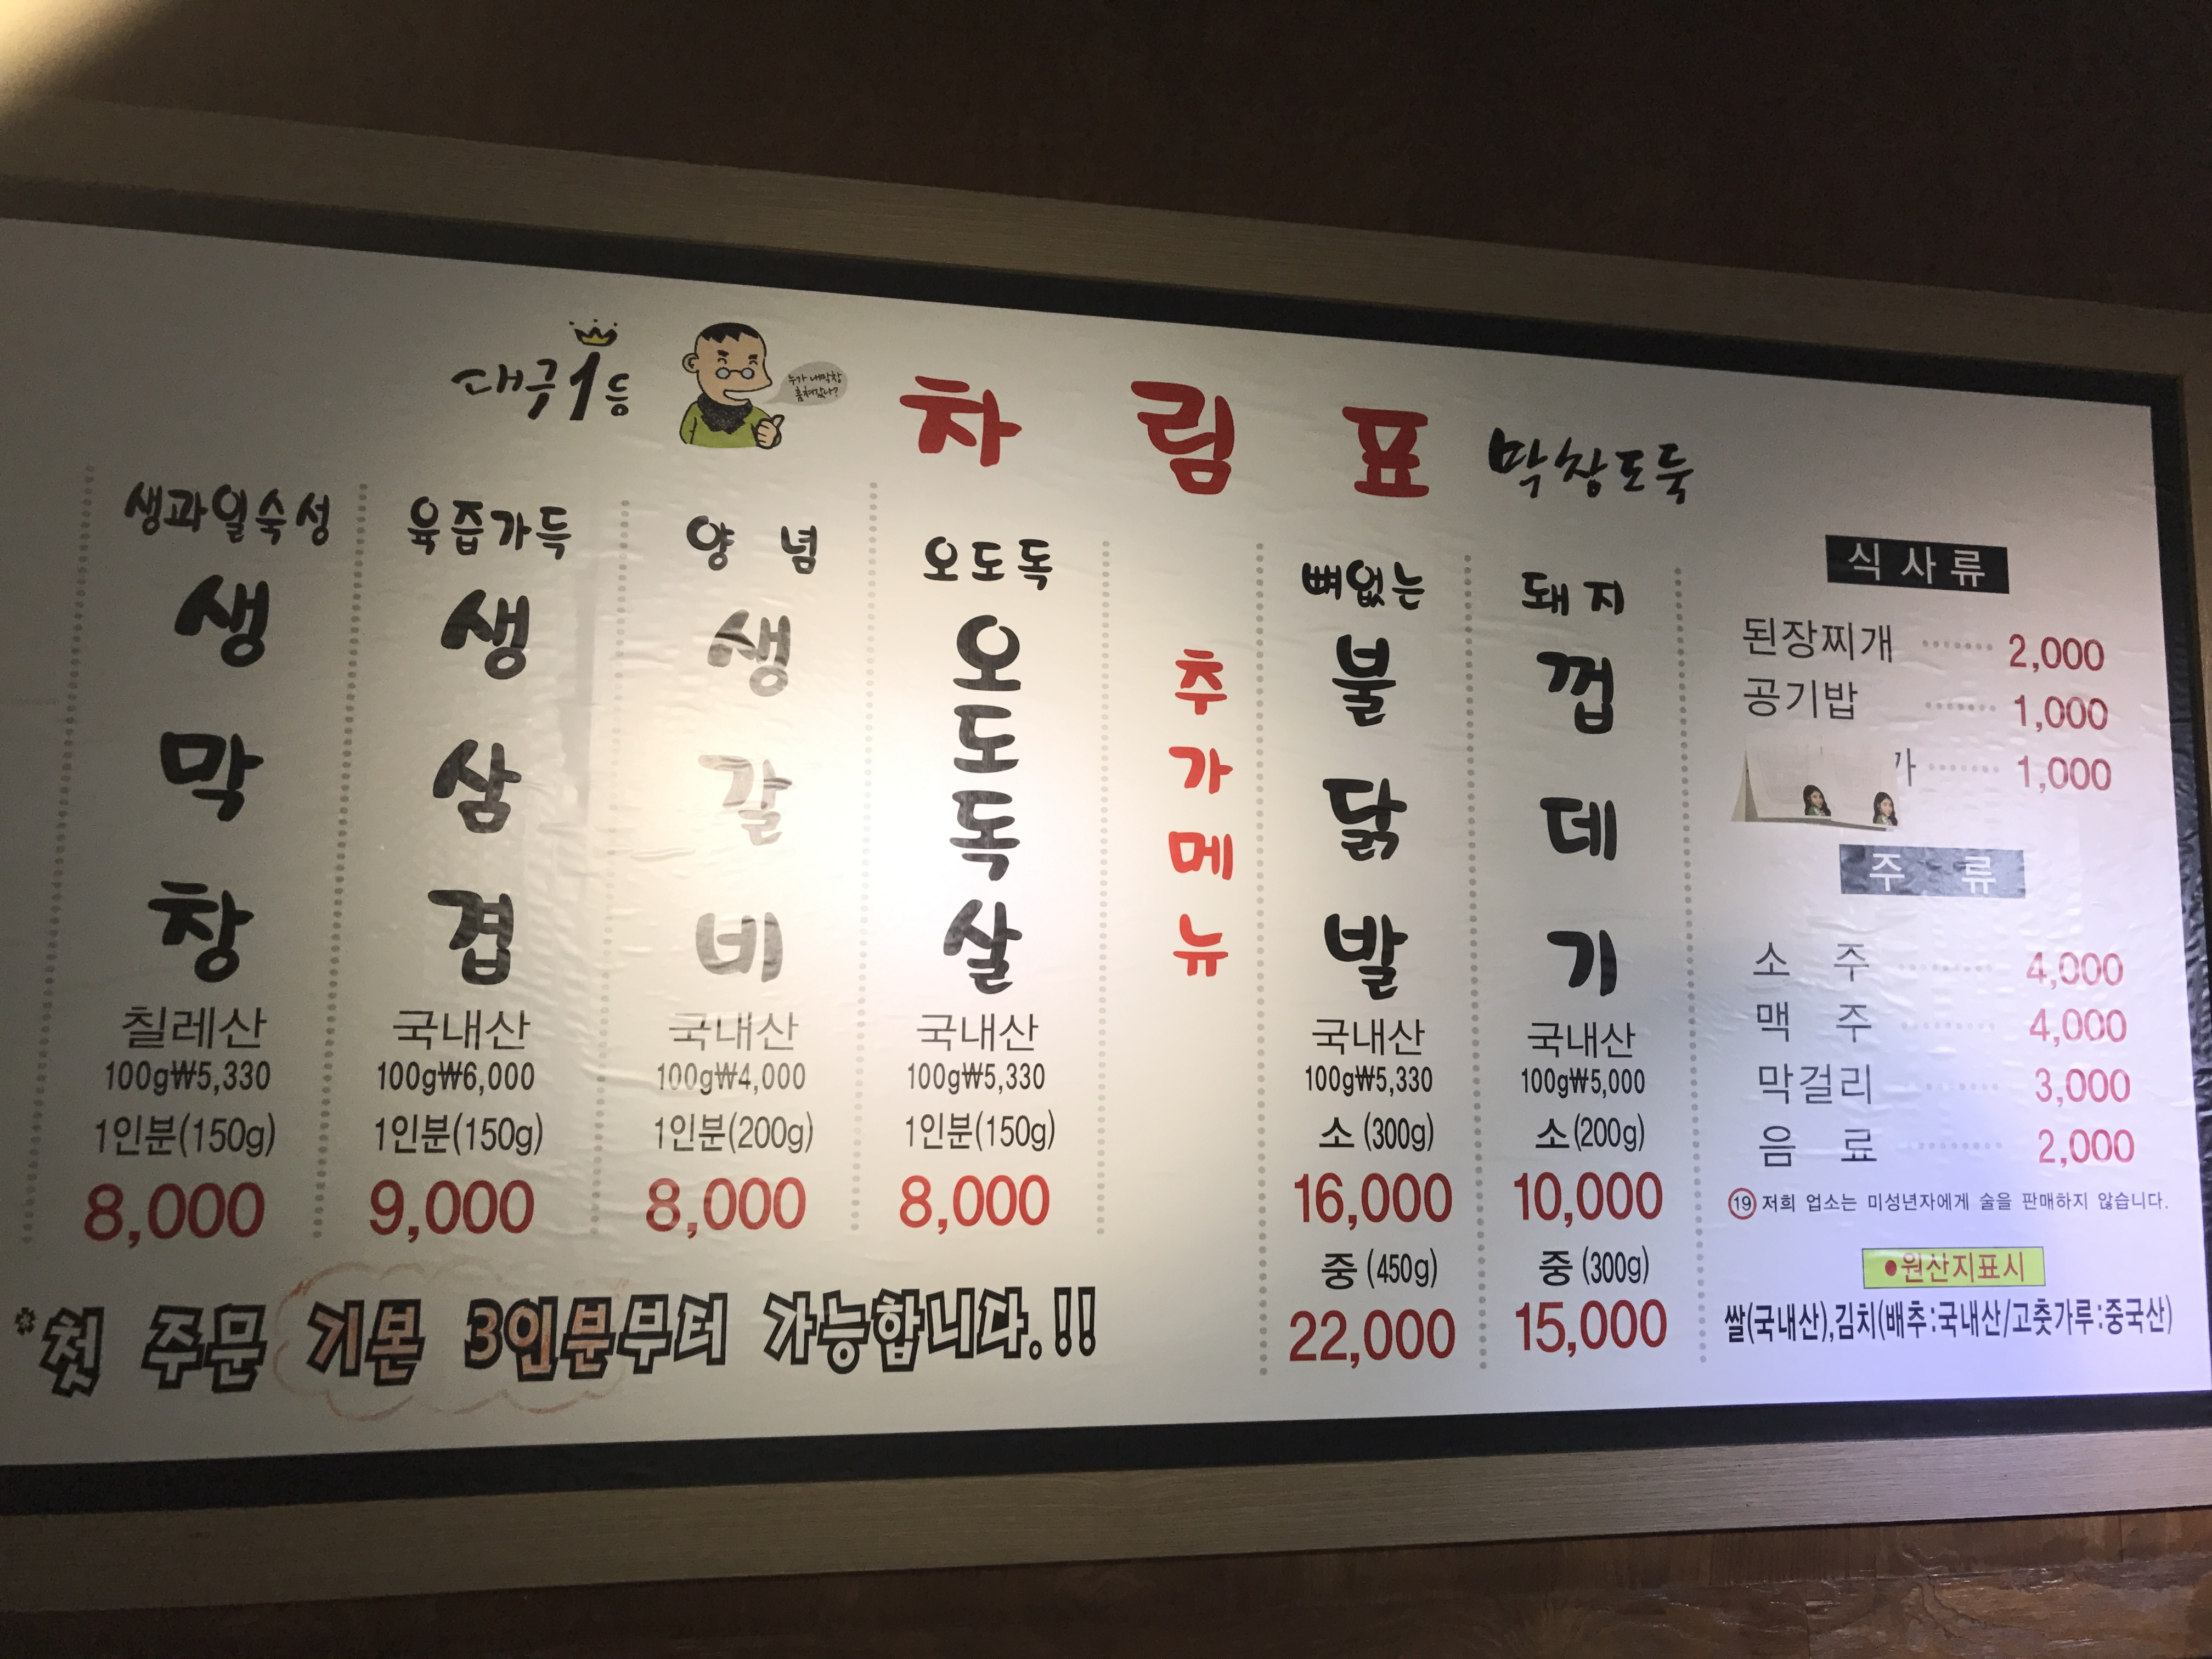 대구1등
누가 내막창
훔쳐갔나?
차림표
막창도둑
생과일숙성
생막창
칠레산
100g₩5,330
1인분(150g)
8,000
육즙가득
생삼겹
국내산
100g₩6,000
1인분(150g)
9,000
양념
생갈비
국내산
100g₩4,000
1인분(200g)
8,000
오도독
오도독살
국내산
100g₩5,330
1인분(150g)
8,000
*첫 주문 기본 3인분부터 가능합니다.!!
추가메뉴
뼈없는
불닭발
국내산
100g₩5,330
소 (300g)
16,000
중 (450g)
22,000
돼지
껍데기
국내산
100g₩5,000
소(200g)
10,000
중 (300g)
15,000
식사류
된장찌개 ······· 2,000
공기밥 ······· 1,000
······· 1,000
주류
소주 ········· 4,000
맥주 ········· 4,000
막걸리 ······· 3,000
음료 ········· 2,000
19 저희 업소는 미성년자에게 술을 판매하지 않습니다.
●원산지표시
쌀(국내산),김치(배추:국내산/고춧가루:중국산)